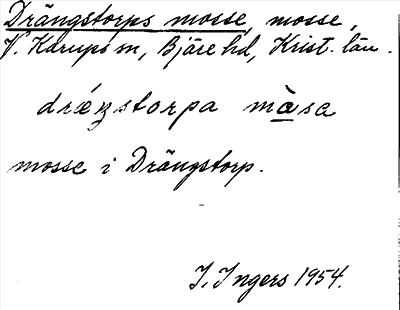 Drängstorps mosse, mosse,
V. Karups sn, Bjäre hd, Krist. län.
drǽŋstorpa màsa
mosse i Drängstorp.
I. Ingers 1954.